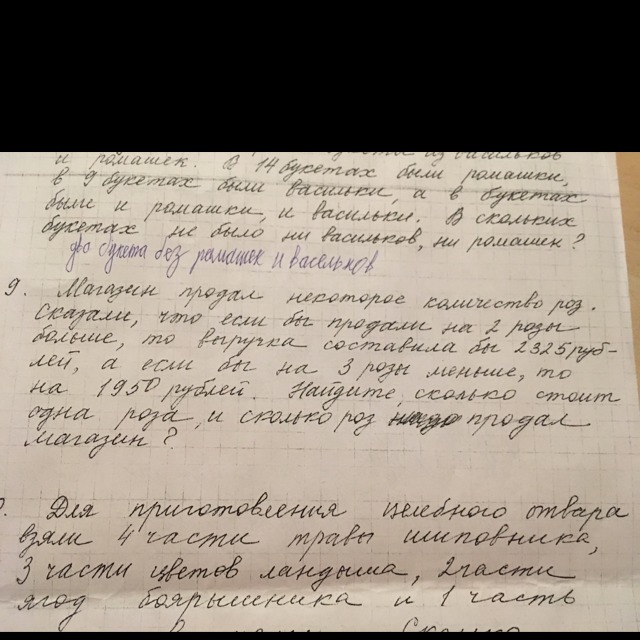 из васильков
и ромашек. В 14 букетах были ромашки,
в 9 букетах были васильки, а в букетах
были и ромашки, и васильки. В скольких
букетах не было ни васильков, ни ромашек?
два букета без ромашек и васильков
9. Магазин продал некоторое количество роз.
Сказали, что если бы продали на 2 розы
больше, то выручка составила бы 2325 руб-
лей, а если бы на 3 розы меньше, то
на 1950 рублей. Найдите, сколько стоит
одна роза, и сколько роз продал
магазин?
Для приготовления целебного отвара
взяли 4 части травы шиповника,
3 части цветов ландыша, 2 части
ягод боярышника и 1 часть
Сколько